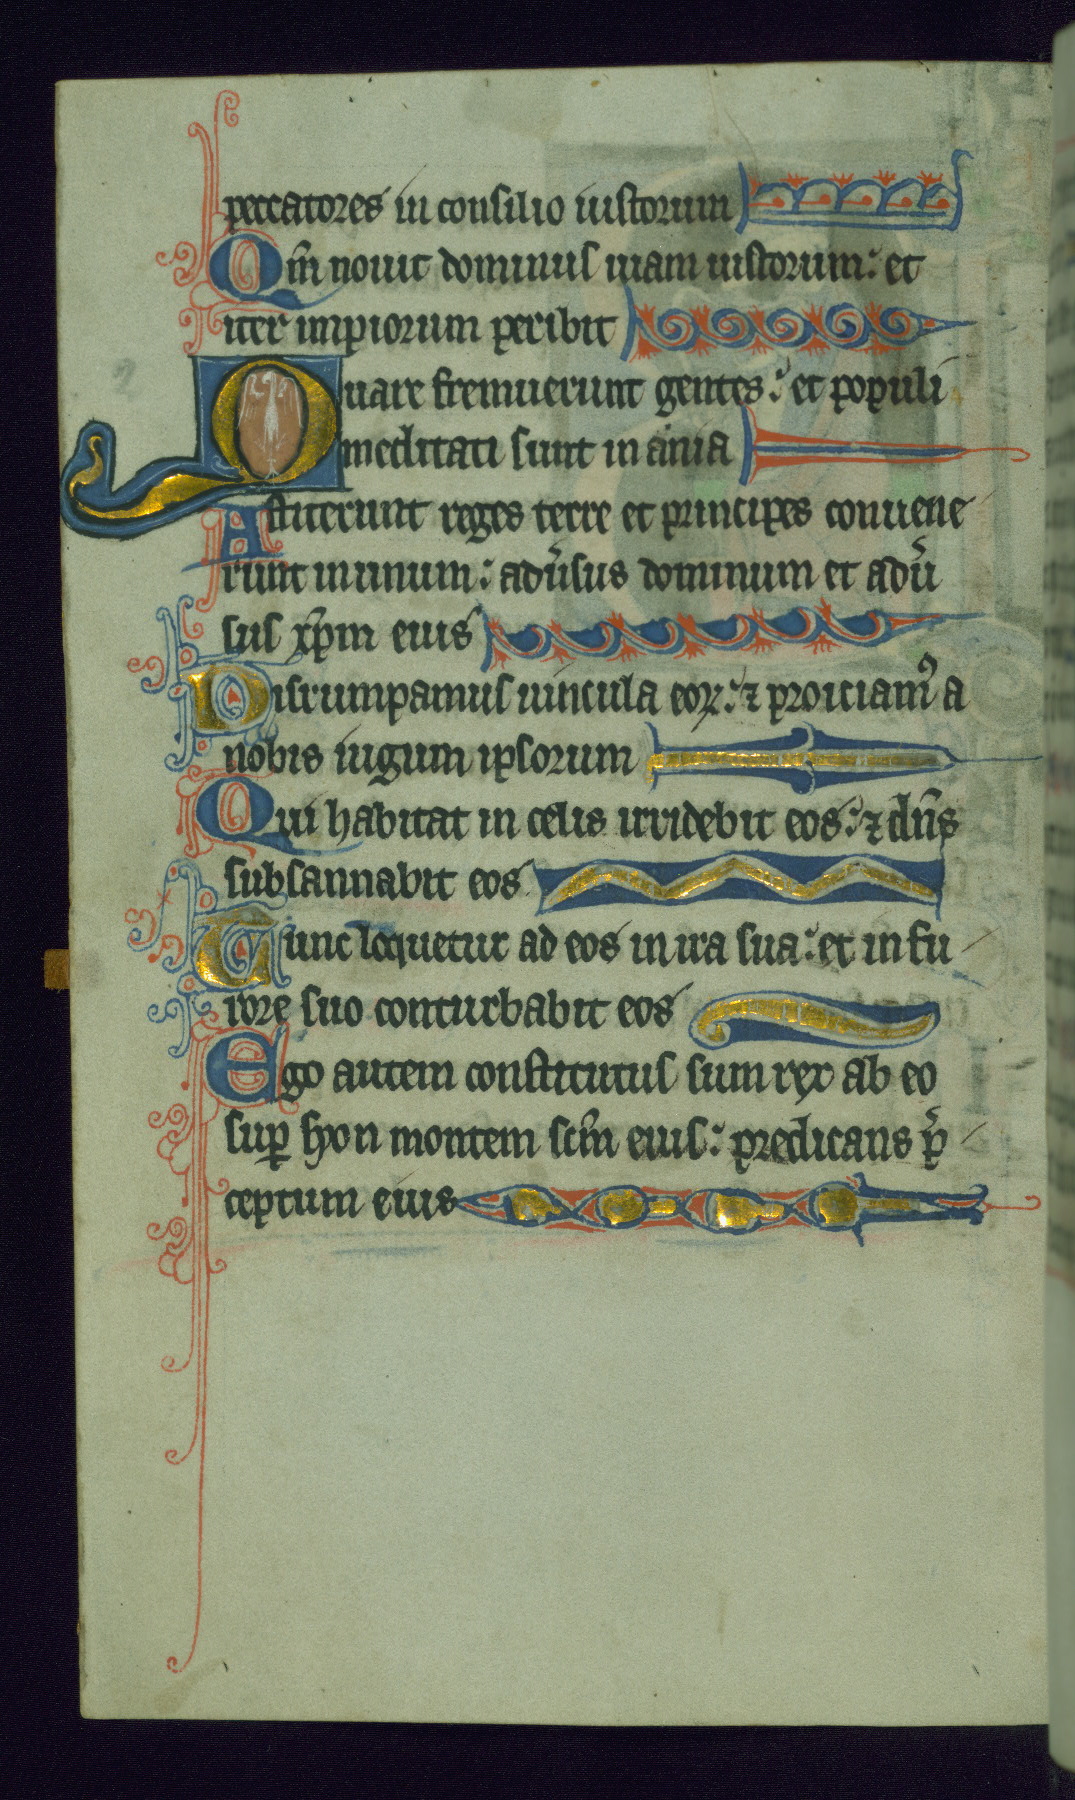 peccatores in consilio iustorum
Qm̅ nouit dominus uiam iustorum: et
iter impiorum peribit
2
Quare fremuerunt gentes: et populi
meditati sunt inania
Astiterunt reges terre et principes conuene
runt in unum: adu̅sus dominum et adu̅
sus xp̅m eius
Disrumpamus uincula eoꝝ: ⁊ proiciamꝰ a
nobis iugum ipsorum
Qui habitat in celis irridebit eos: ⁊ dn̅s
subsannabit eos
Tunc loquetur ad eos in ira sua: et in fu
rore suo conturbabit eos
Ego autem constitutus sum rex ab eo
suꝑ syon montem scm̅ eius: predicans p̅
ceptum eius